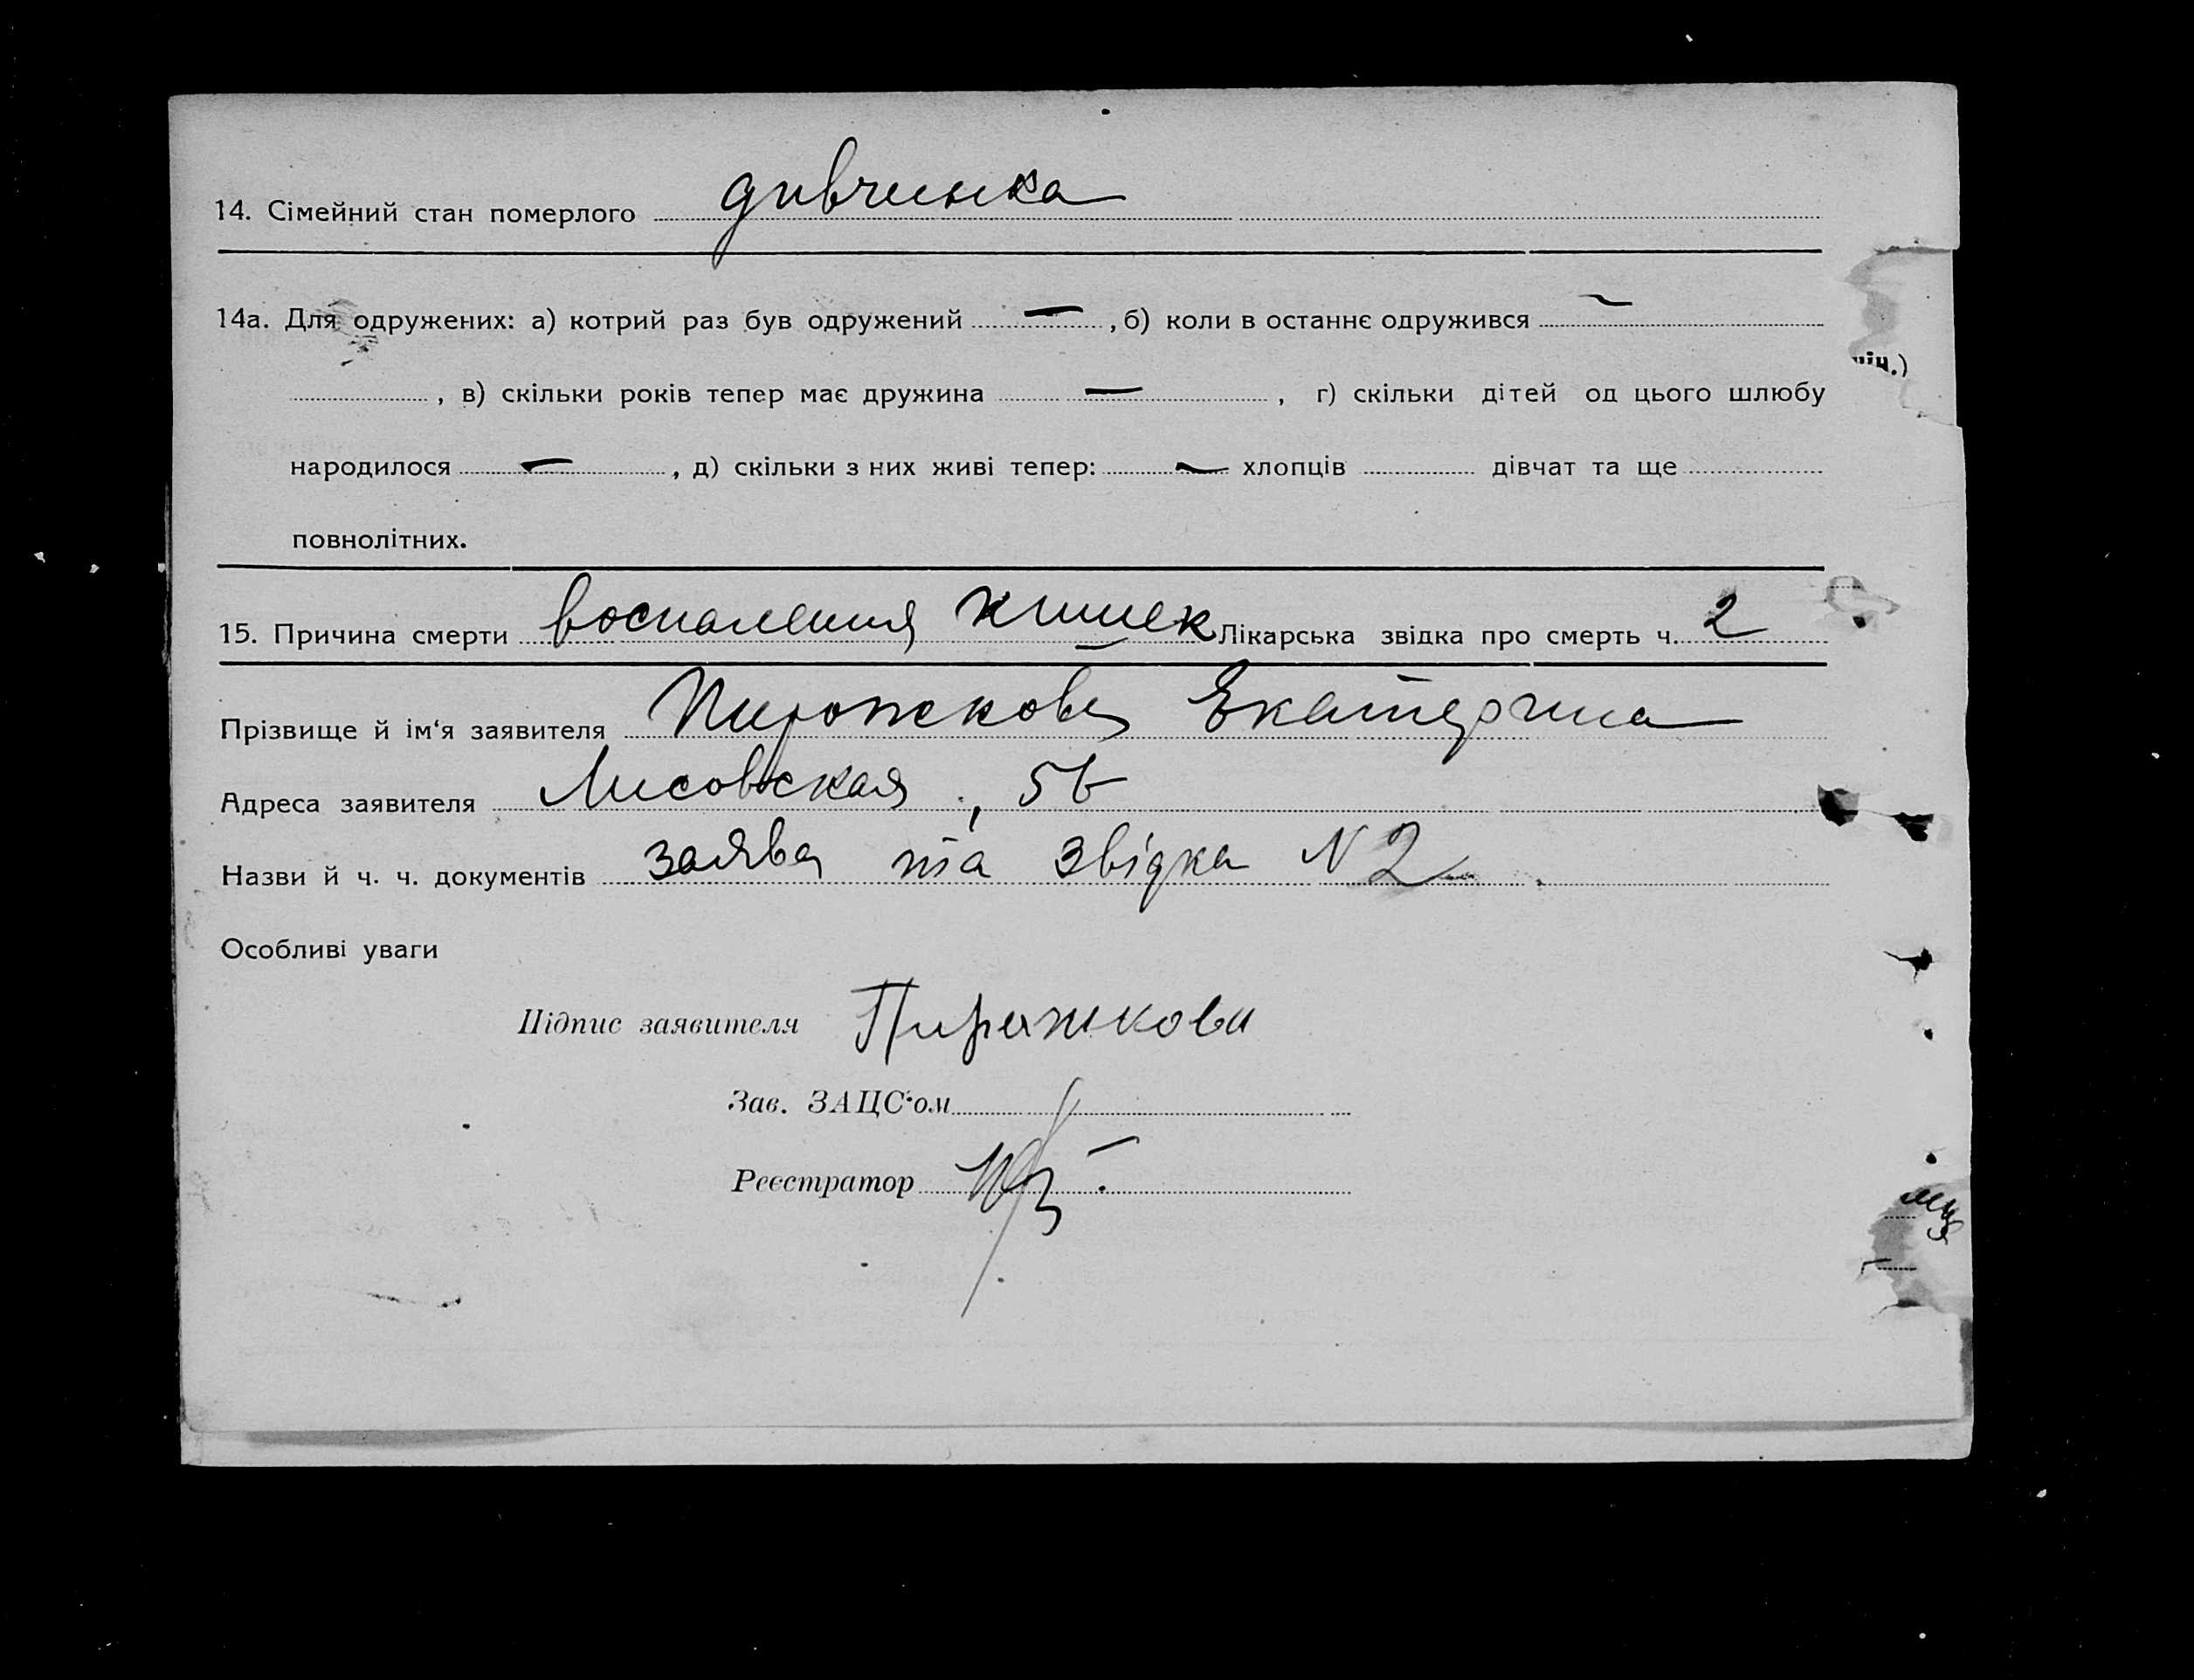 14. Сімейний стан померлого дивчинка
14а. Для одружених: а) котрий раз був одружений — , б) коли в останнє одружився —
, в) скільки років тепер має дружина — , г) скільки дітей од цього шлюбу
народилося — , д) скільки з них живі тепер: — хлопців дівчат та ще
повнолітних.
15. Причина смерти воспаления кишек Лікарська звідка про смерть ч. 2
Прізвище й ім‘я заявителя Пирожкова Екатерина
Адреса заявителя Лисовская, 5б
Назви й ч. ч. документів заява та звідка N 2
Особливі уваги
Підпис заявителя Пирожкова
Зав. ЗАЦС‘ом
Реєстратор